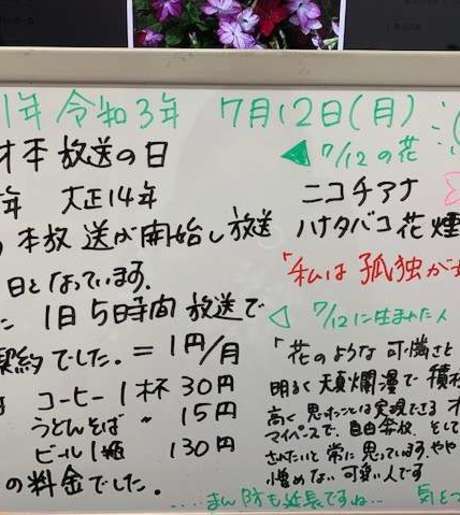 1年 令和3年 7月12日(月)
オ本放送の日
年 大正14年
本放送が開始し放送
日となっています.
1日5時間放送で
契約でした.=1円/月
コーヒー1杯 30円
うどんそば 〃 15円
ビール1瓶 130円
の料金でした.
7/12の花
ニコチアナ
ハナタバコ 花煙
「私は孤独が
7/12に生まれた人
「花のような可憐さと
明るく天真爛漫で積
高く思ったことは実現できる
マイペースで、自由奔放、そして
されたいと常に思っています.やや
憎めない可愛い人です
....まん防も延長ですね...